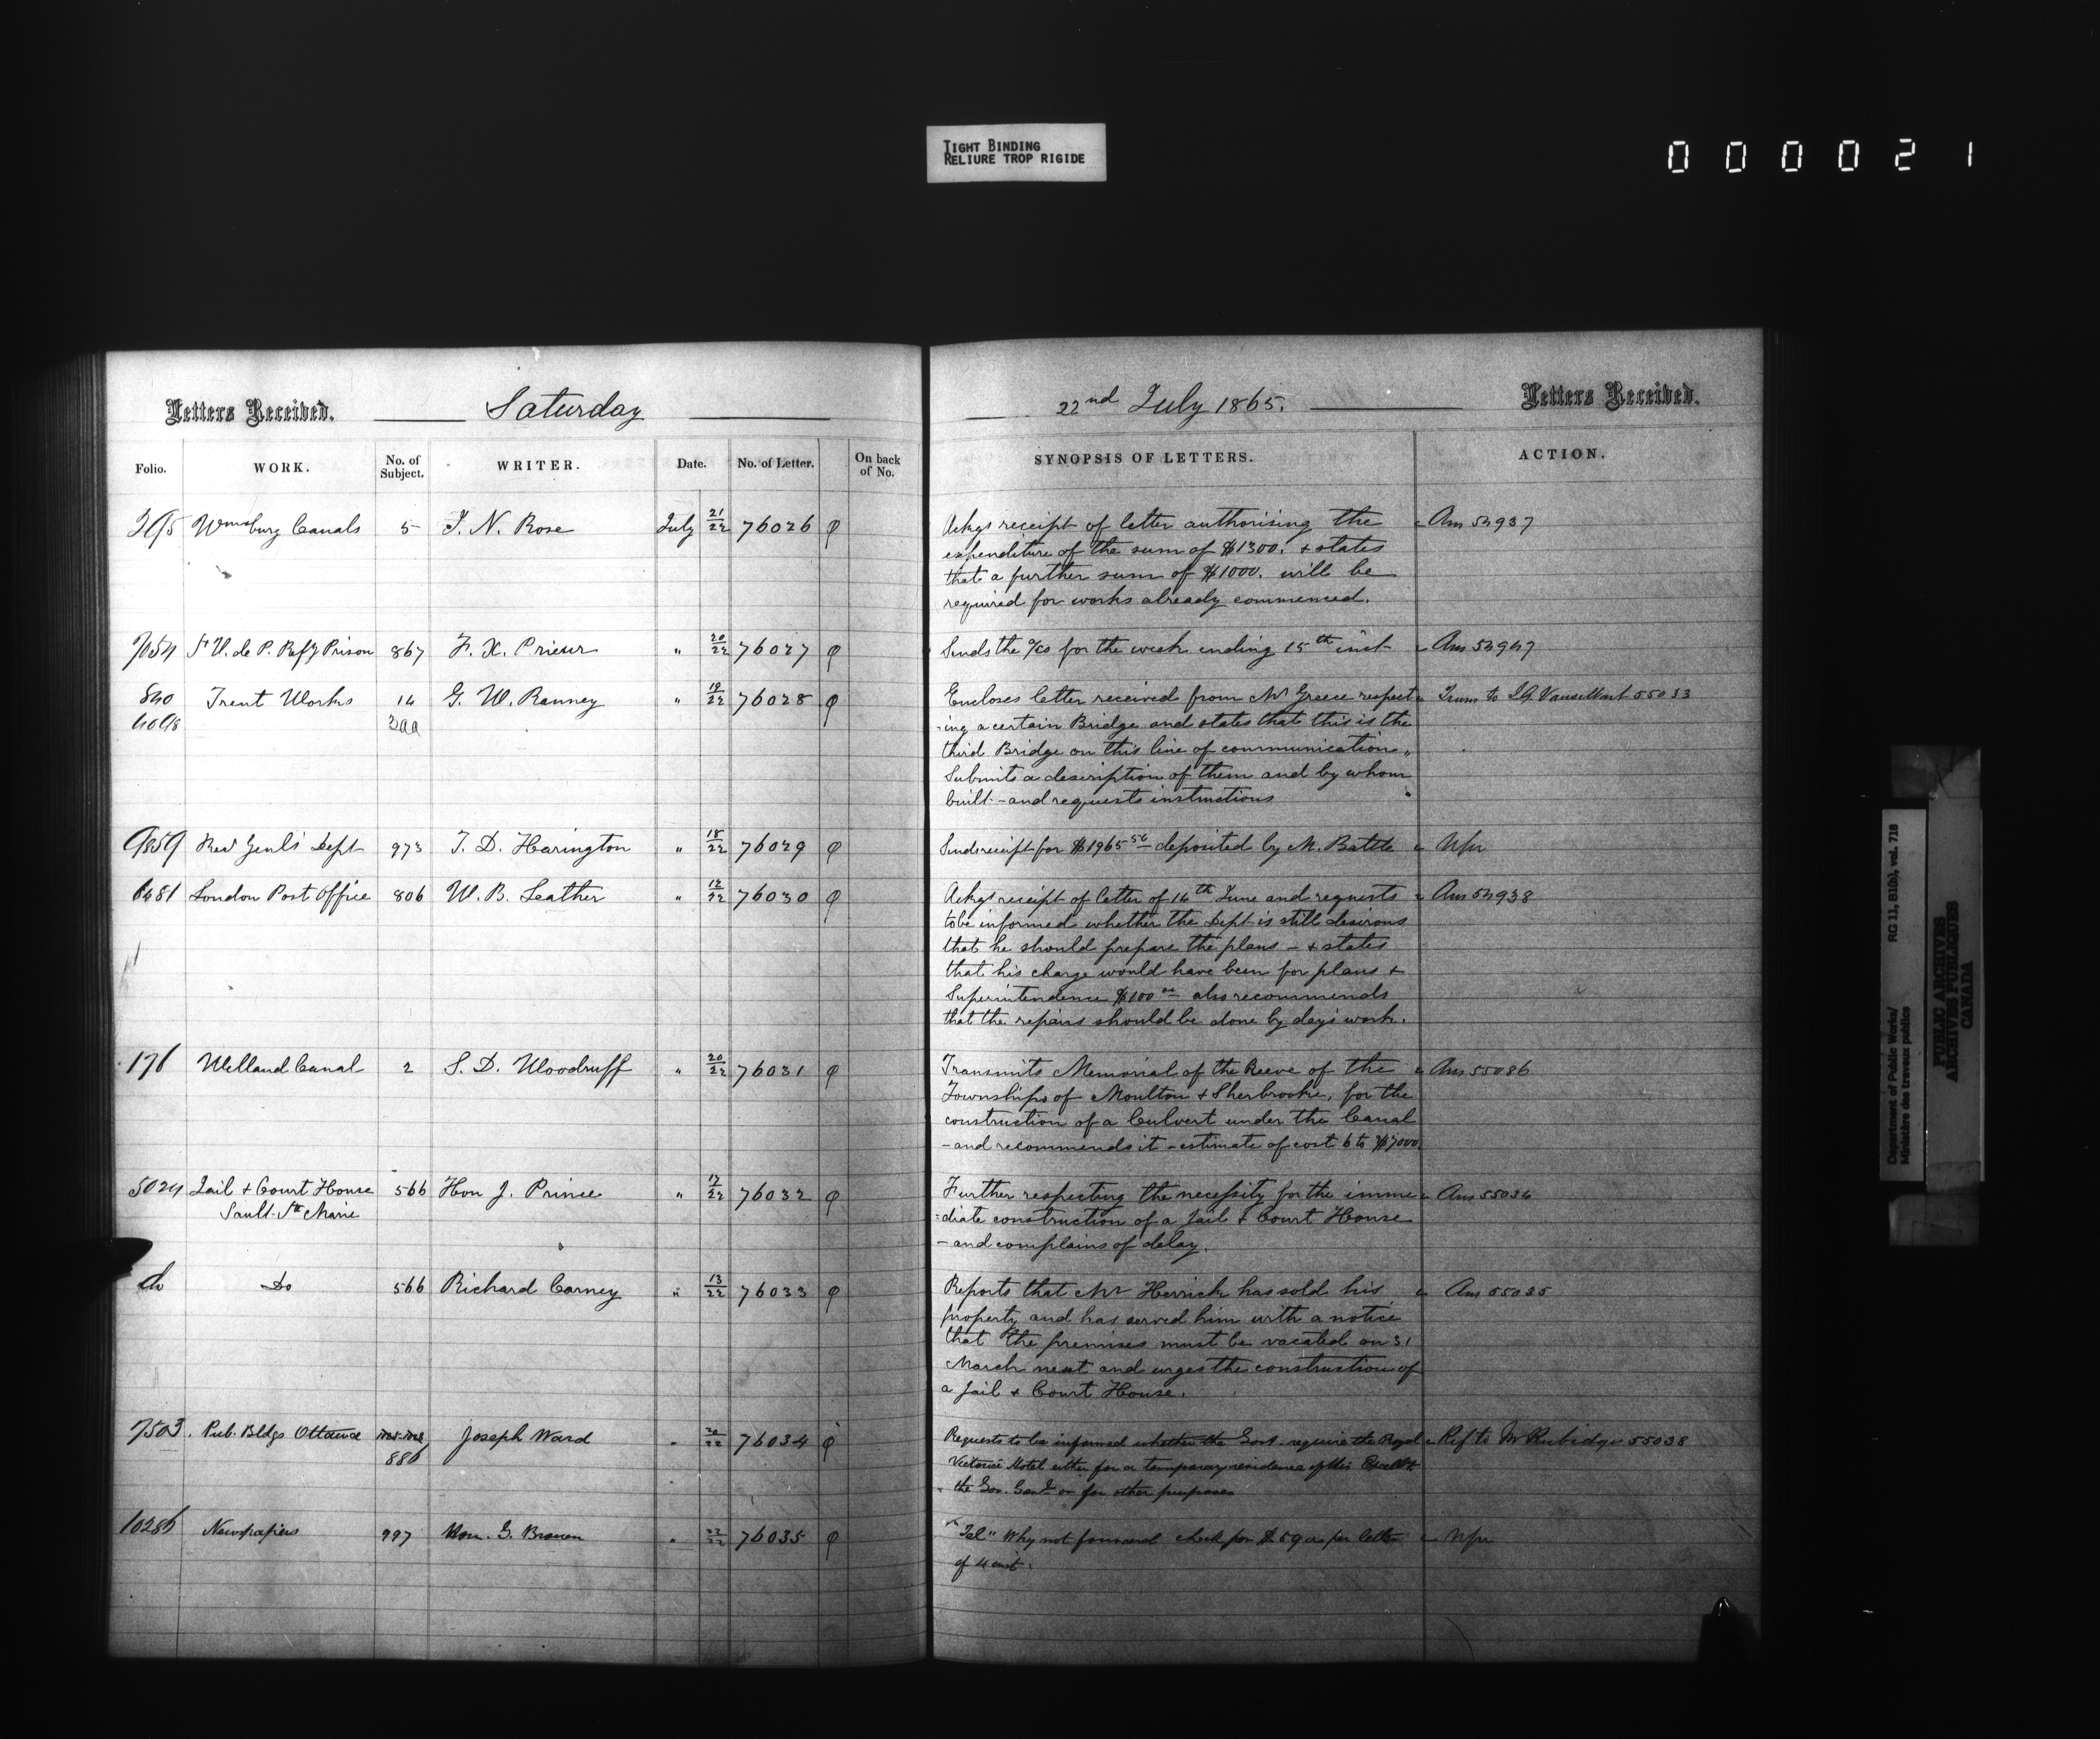 TIGHT BINDING
RELIURE TROP RIGIDE
0 0 0 0 2 1
Letters Received. Saturday
22nd July 1865. Letters Received.
Folio. WORK. No. of Subject. WRITER. Date. No. of Letter. On back of No.
SYNOPSIS OF LETTERS. ACTION.
Wmsburg Canals 5 J. N. Rose July 21/22 76026
Ackgs receipt of letter authorising the Ans 54937
expenditure of the sum of $1300. & states
that a further sum of $1000. will be
required for works already commenced.
7054 St V. de P. Refy Prison 867 F. X. Prieur " 20/22 76027
Sends the a/cs for the week ending 15th inst Ans 54947
840 Trent Works 14 G. W. Ranney " 19/22 76028
Encloses letter received from Mr Greece respect Trans to 55033
-ing a certain Bridge and states that this is the
third Bridge on this line of communication,
Submits a description of them and by whom
built - and requests instructions
9859 Recr Genl's Dept 973 T. D. Harington " 18/22 76029
Sends receipt for $1965 56 deposited by M. Battle Nfr
6481 London Post Office 806 W. B. Leather " 12/22 76030
Ackgs receipt of letter of 14th June and requests Ans 54938
to be informed whether the Dept is still desirous
that he should prepare the plans - & states
that his charge would have been for plans &
Superintendence $100 oo also recommends
that the repairs should be done by day's work.
176 Welland Canal 2 S. D. Woodruff " 20/22 76031
Transmits Memorial of the Reeve of the Ans 55086
Townships of Moulton & Sherbrooke, for the
construction of a Culvert under the Canal
- and recommends it - estimate of cost 6 to $7000.
5024 Jail & Court House 566 Hon J. Prince " 17/22 76032
Sault Ste Marie
Further respecting the necessity for the imme Ans 55034
=diate construction of a Jail & Court House
- and complains of delay.
do Do 566 Richard Carney " 13/22 76033
Reports that Mr Herrick has sold his Ans 55035
property and has served him with a notice
that the premises must be vacated on 31
March next and urges the construction of
a Jail & Court House.
7503. Pub. Bldgs Ottawa Joseph Ward " 20/22 76034
886
Requests to be informed whether the Govt. require the Royal Ref to Mr Rubidge 55038
Victoria Hotel either for a temporary residence of His Excelly
the Gov. Genl or for other purposes
10286 Newspapers 997 Hon. G. Brown " 22/22 76035
"Tel" Why not forward check for $59 as per letter Nfr
of 4 inst.
Department of Public Works/ RG 11, B1(b), vol. 718
Ministère des travaux publics
PUBLIC ARCHIVES
ARCHIVES PUBLIQUES
CANADA